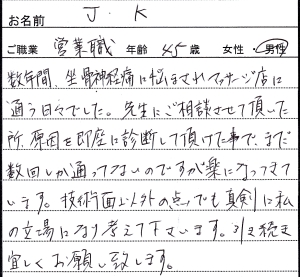 お名前 J.K
ご職業 営業職 年齢 45歳 女性・男性
数年間、坐骨神経痛に悩まされマッサージ店に
通う日々でした。先生にご相談させて頂いた
所、原因を即座に診断して頂けた事で、まだ
数回しか通ってないのですが楽になってきて
います。技術面以外の点でも真剣に私
の立場になり考えて下さいます。引き続き
宜しくお願い致します。